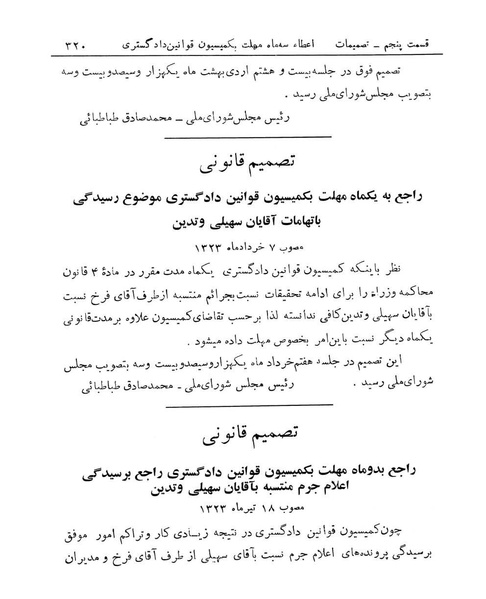 قسمت پنجم ـ تصمیمات اعطاء سه‌ماه مهلت بکمیسیون قوانین‌دادگستری ۳۲۰
تصمیم فوق در جلسه بیست و هشتم اردی‌بهشت ماه یکهزار وسیصدوبیست وسه
بتصویب مجلس‌شورای‌ملی رسید .
رئیس مجلس‌شورای‌ملی ـ محمدصادق طباطبائی
تصمیم قانونی
راجع به یکماه مهلت بکمیسیون قوانین دادگستری موضوع رسیدگی
باتهامات آقایان سهیلی وتدین
مصوب ۷ خردادماه ۱۳۲۳
نظر باینکه کمیسیون قوانین دادگستری یکماه مدت مقرر در مادهٔ ۴ قانون
محاکمه وزراء را برای ادامه تحقیقات نسبت‌بجرائم منتسبه ازطرف‌آقای فرخ نسبت
بآقایان سهیلی وتدین‌کافی ندانسته لذا برحسب تقاضای‌کمیسیون علاوه برمدت‌قانونی
یکماه دیگر نسبت باین‌امر بخصوص مهلت داده میشود .
این تصمیم در جلسه هفتم‌خرداد ماه یکهزاروسیصدوبیست وسه بتصویب مجلس
شورای‌ملی رسید . رئیس مجلس شورای‌ملی ـ محمدصادق طباطبائی
تصمیم قانونی
راجع بدوماه مهلت بکمیسیون قوانین دادگستری راجع برسیدگی
اعلام جرم منتسبه بآقایان سهیلی وتدین
مصوب ۱۸ تیرماه ۱۳۲۳
چون‌کمیسیون قوانین دادگستری در نتیجه زیادی کار وتراکم امور موفق
برسیدگی پرونده‌های اعلام جرم نسبت بآقای سهیلی از طرف آقای فرخ و مدیران